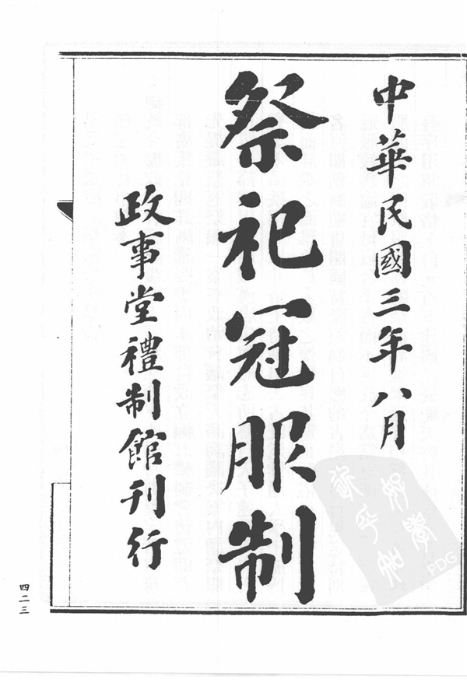 中華民國三年八月
祭祀冠服制
政事堂禮制館刊行
四二三
PDG